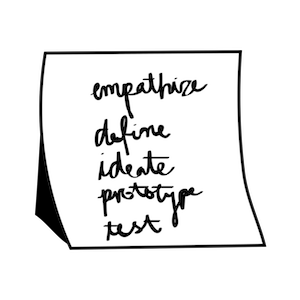 empathize
define
ideate
prototype
test